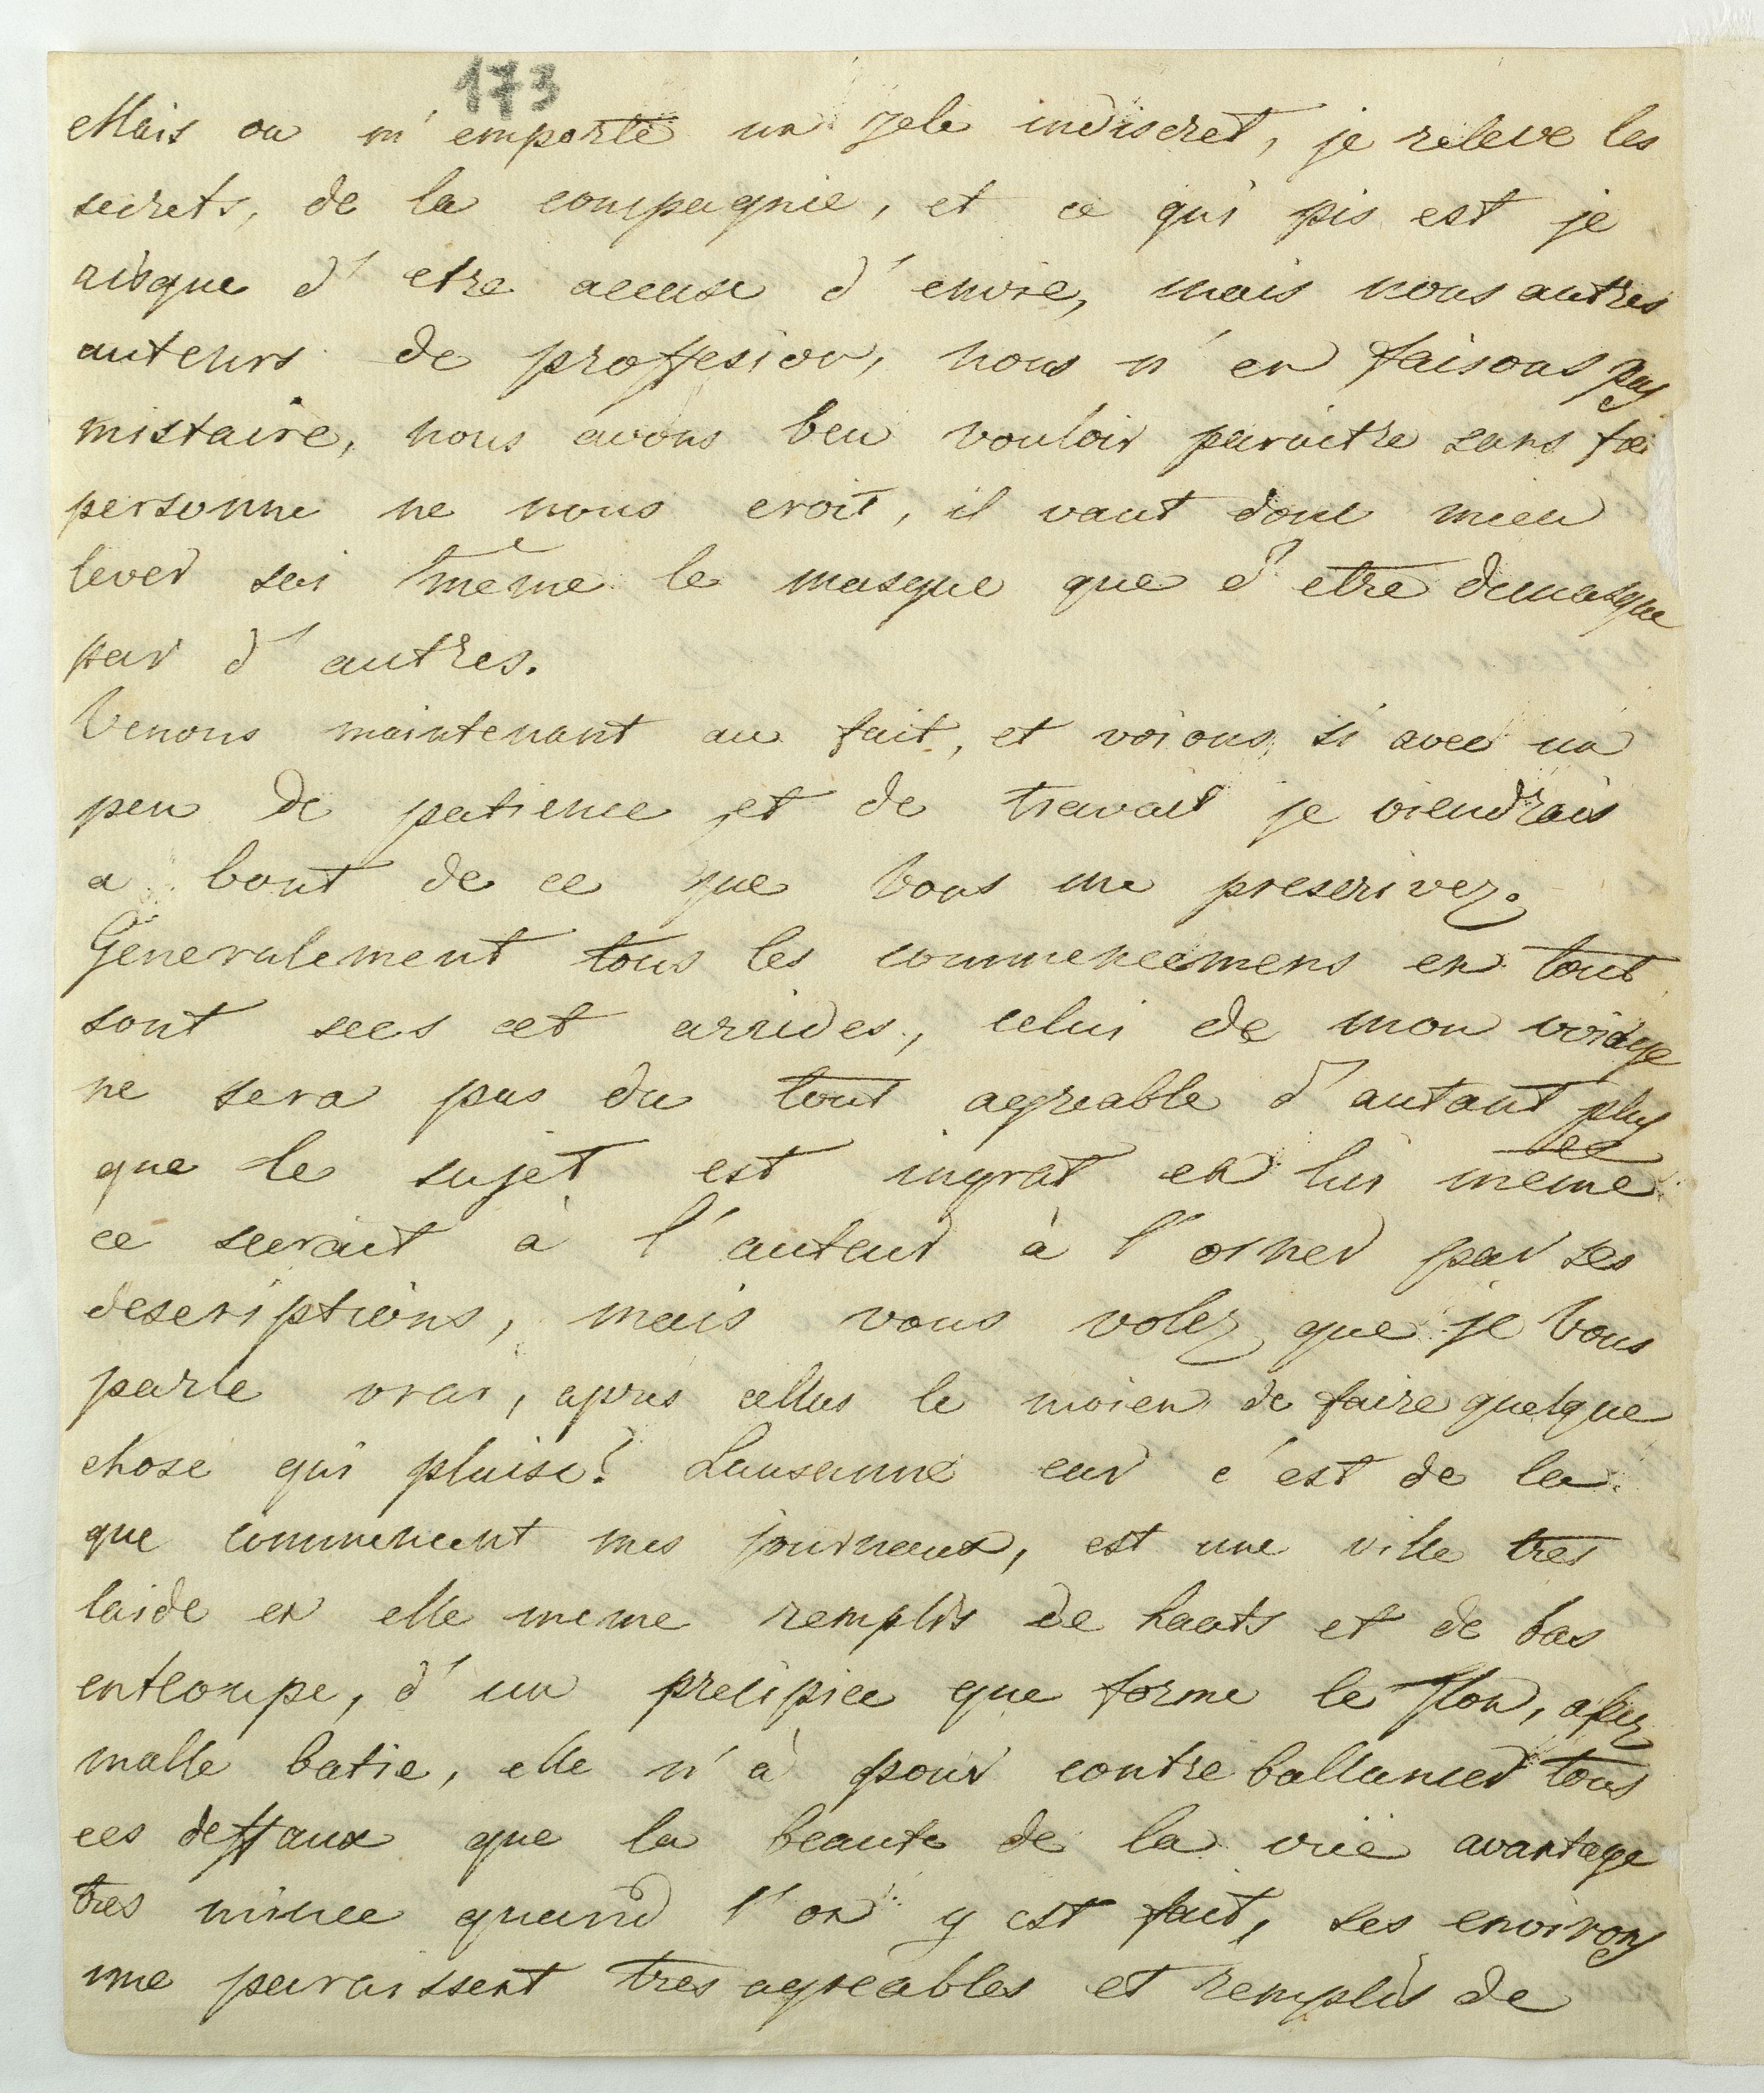 173
Mais ou m'emporte un zele indiscret, je releve les
secrets, de la compagnie, et ce qui pis est je
risque d'etre accuse d'envie, mais nous autres
auteurs de proffesion, nous n'en faisons pas
mistaire, nous avons beu vouloir paroitre sans
personne ne nous croit, il vaut donc mieu
lever soi même le masque que d'etre demasque
par d'autres.
Venons maintenant au fait, et voions si avec un
peu de patience et de travail je viendrais
a bout de ce que Vous me prescrivez.
Generalement tous les commencemens en tout
sont secs et arrides, celui de mon voiage
ne sera pas du tout agreable d'autant plus
que le sujet est ingrat en lui meme
ce serait à l'auteur à l'orner par ses
descriptions, mais vous volez que je Vous
parle vrai, apres cellas le moien de faire quelque
chose qui plaise? Lausanne car c'est de la
que commencent mes journeaux, est une ville tres
laide en elle meme remplis de hauts et de bas
entcoupe, d'un precipice que forme le Flon, assez
malle batie, elle n'à pour contre ballancer tous
ces deffaux que la beaute de la vüe avantage
tres mince quand l'on y est fait, ses environs
me paraissent tres agreables et remplis de